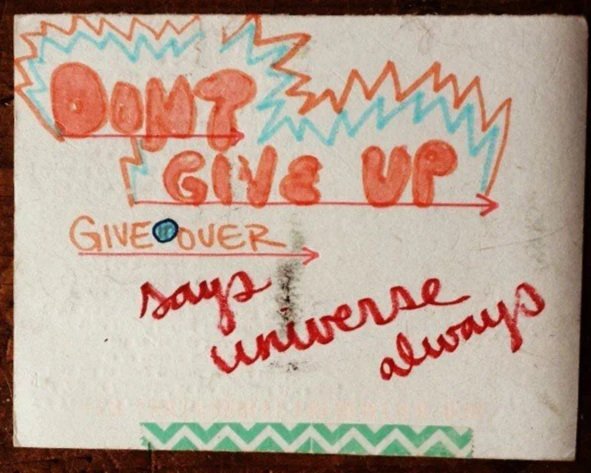 DONT
GIVE UP
GIVE OVER
says
universe
always